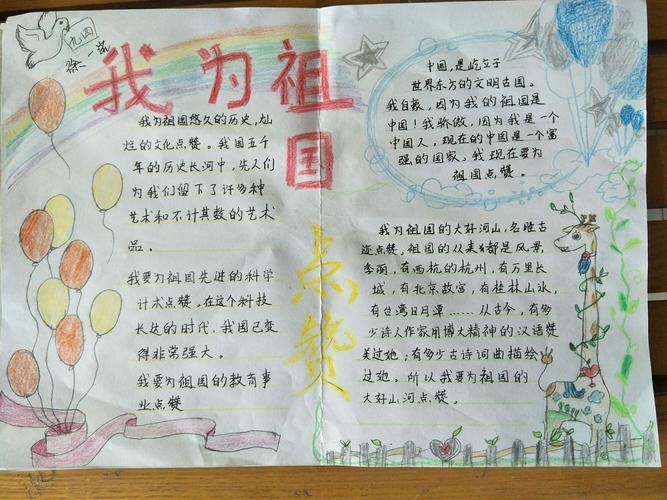 九四
徐
我为祖国
点赞
我为祖国悠久的历史,灿
烂的文化点赞。我国五千
年的历史长河中,先人们
为我们留下了许多种
艺术和不计其数的艺术
品。
我要为祖国先进的科学
计术点赞。在这个科技
长达的时代,我国已变
得非常强大。
我要为祖国的教育事
业点赞
中国,是屹立于
世界东方的文明古国。
我自豪,因为我的祖国是
中国!我骄傲,因为我是一个
中国人,现在的中国是一个富
强的国家。我现在要为
祖国点赞。
我为祖国的大好河山,名胜古
迹点赞。祖国的从来都是风景
秀丽,有西杭的杭州,有万里长
城,有北京故宫,有桂林山水,
有台湾日月潭……从古今,有多
少诗人作家用博大精神的汉语赞
美过她;有多少古诗词曲描绘
过她。所以我要为祖国的
大好山河点赞。